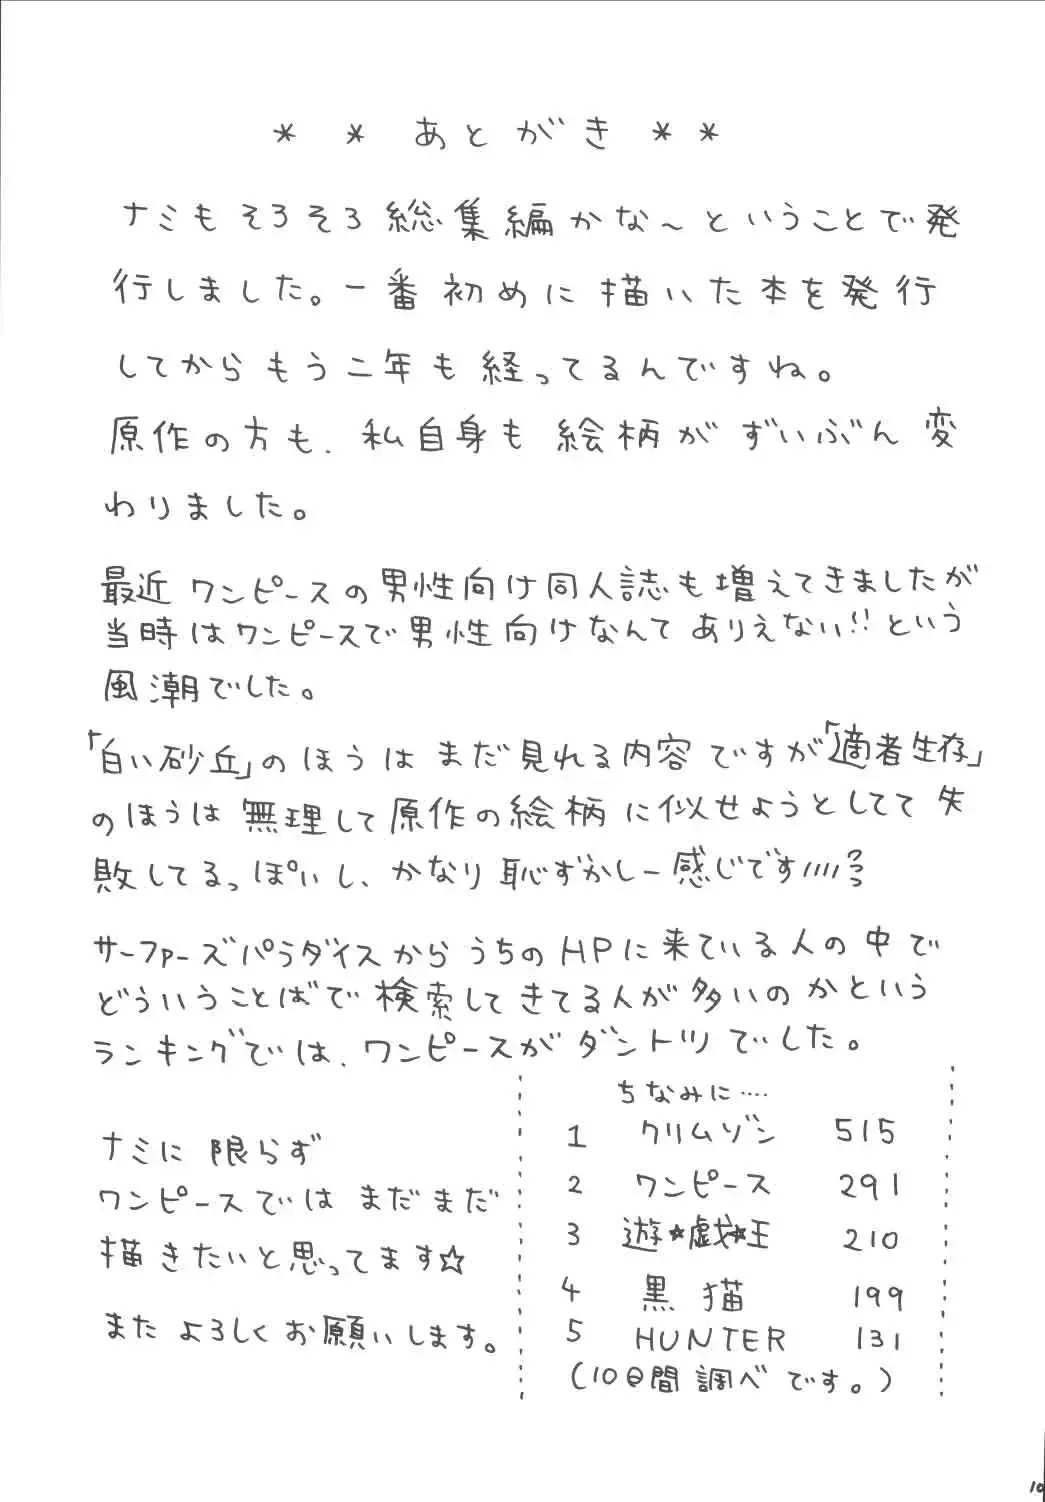 ＊ ＊ あとがき ＊＊
ナミもそろそろ総集編かな～ということで発
行しました。一番初めに描いた本を発行
してからもう二年も経ってるんですね。
原作の方も、私自身も絵柄がずいぶん変
わりました。
最近ワンピースの男性向け同人誌も増えてきましたが
当時はワンピースで男性向けなんてありえない!!という
風潮でした。
「白い砂丘」のほうはまだ見れる内容ですが「適者生存」
のほうは無理して原作の絵柄に似せようとしてて失
敗してるっぽいし、かなり恥ずかしー感じです////
サーファーズパラダイスからうちのHPに来ている人の中で
どういうことばで検索してきてる人が多いのかという
ランキングでは、ワンピースがダントツでした。
ナミに限らず
ワンピースではまだまだ
描きたいと思ってます☆
またよろしくお願いします。
ちなみに‥‥
1 クリムゾン 515
2 ワンピース 291
3 遊★戯★王 210
4 黒猫 199
5 HUNTER 131
(10日間調べです。)
10